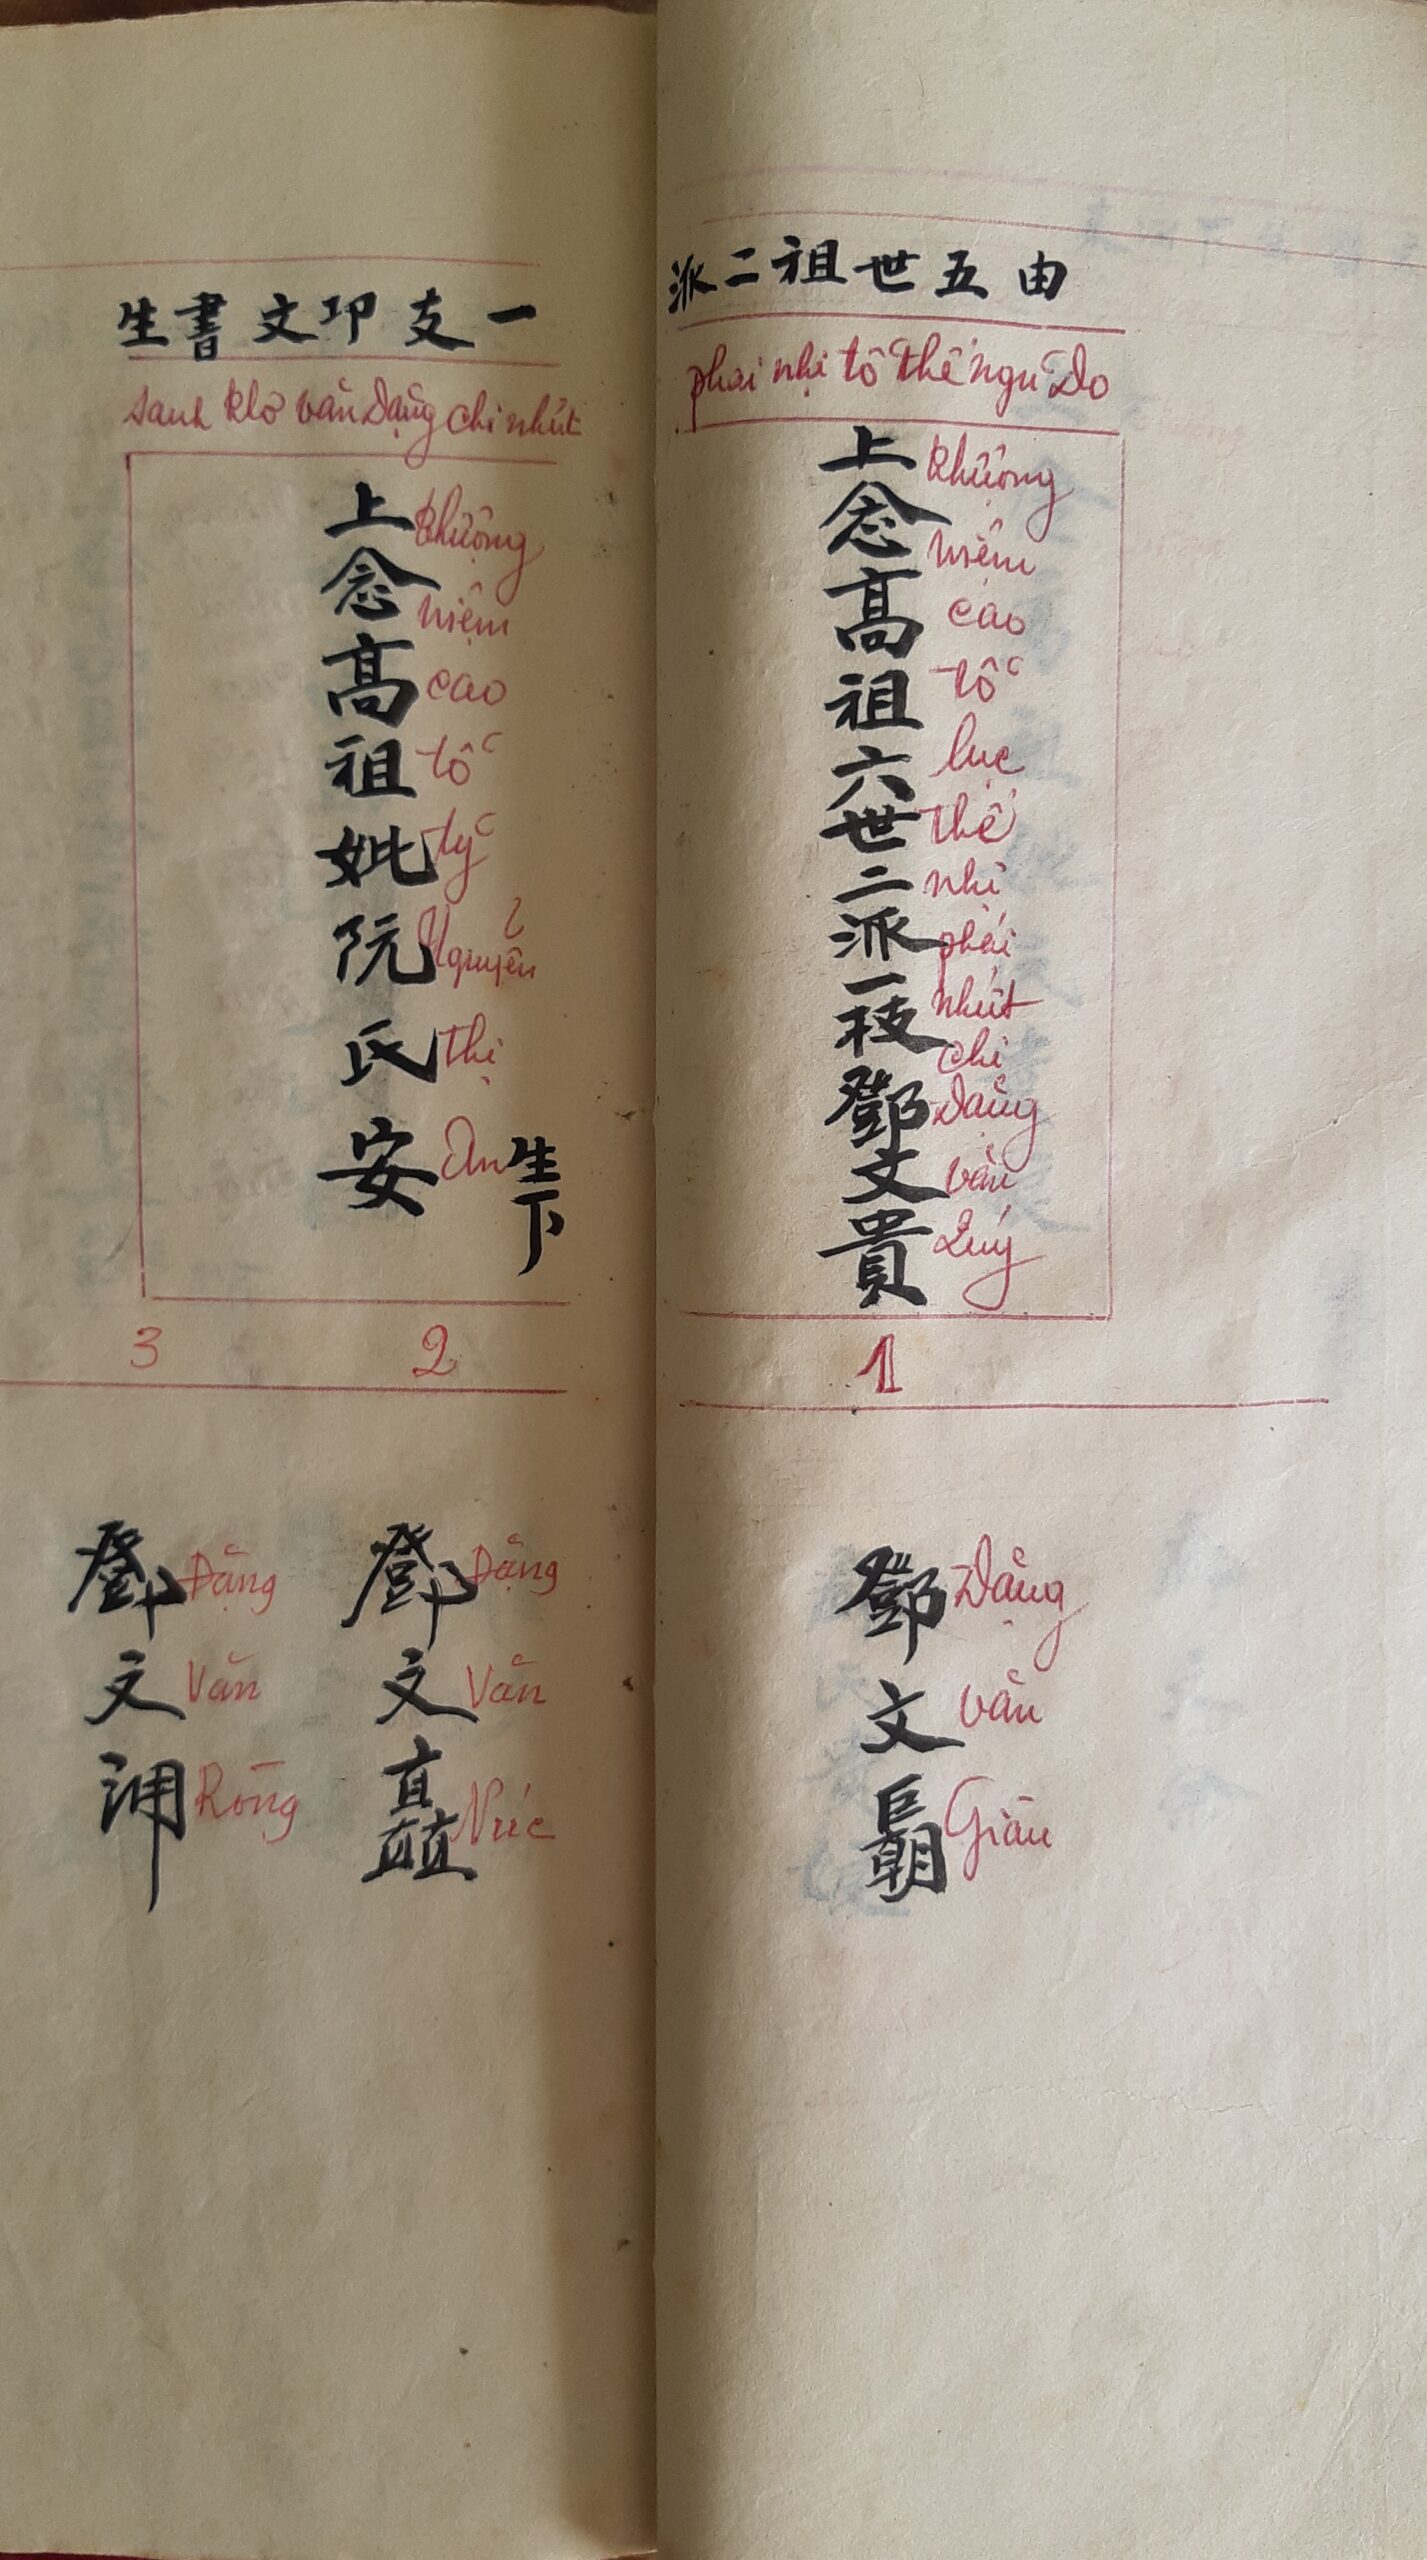 由五世祖二派
phái nhị tổ thế ngũ Do
上念高祖六世二派一枝鄧文貴
thượng niệm cao tổ lục thế nhị phái nhứt chi Đặng văn Quý
1
鄧文
Đặng văn Giàu
一支卭文書生
sanh thơ văn Đặng chi nhứt
上念高祖妣阮氏安
thượng niệm cao tổ tỷ Nguyễn thị An
生下
2
3
鄧文矗
Đặng Văn Núc
鄧文
Đặng Văn Rộng